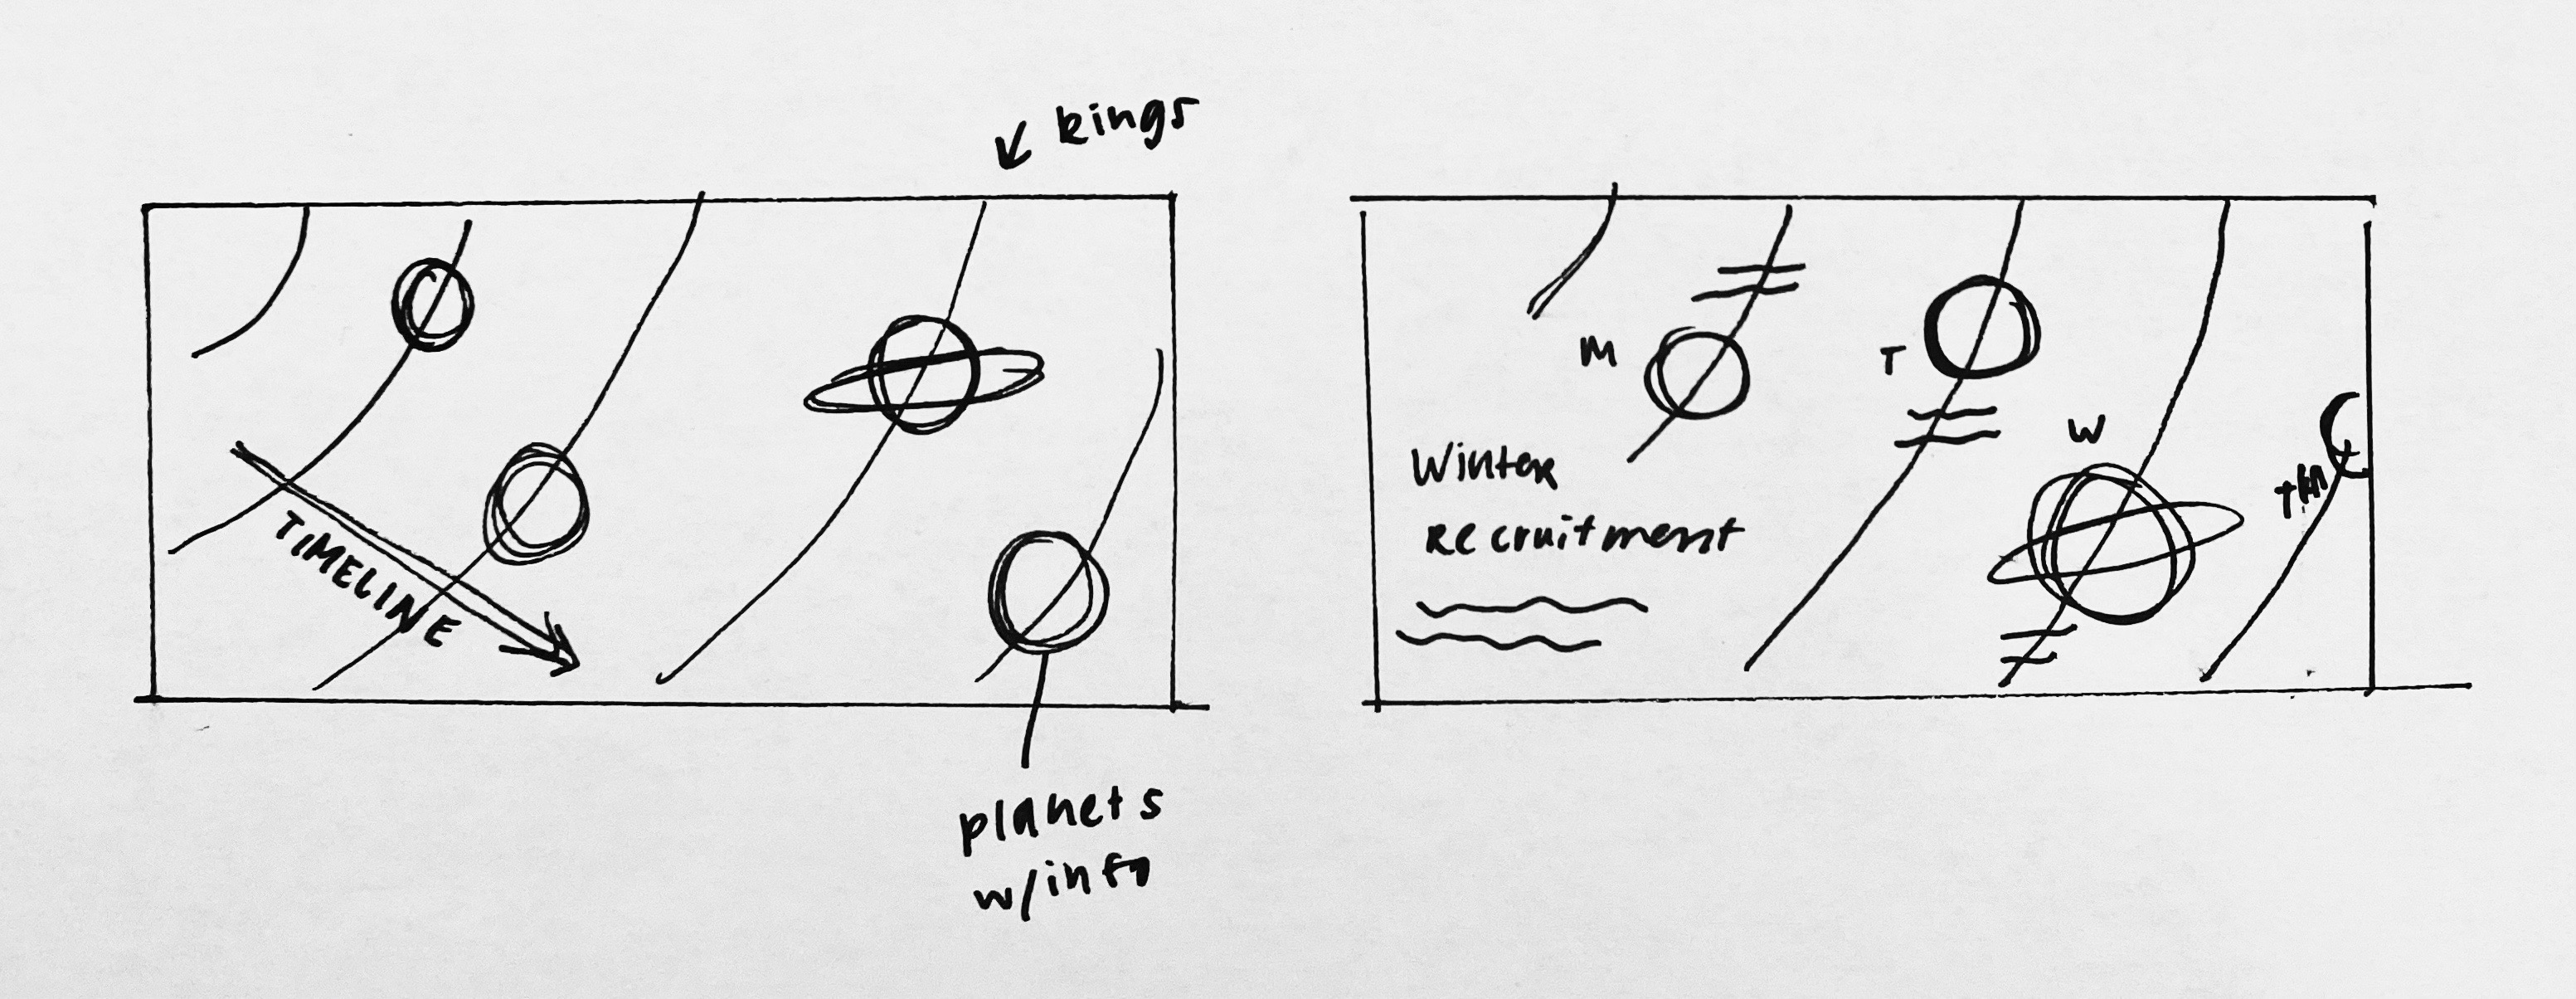 rings
TIMELINE
planets
w/info
M
T
W
Winter
recruitment